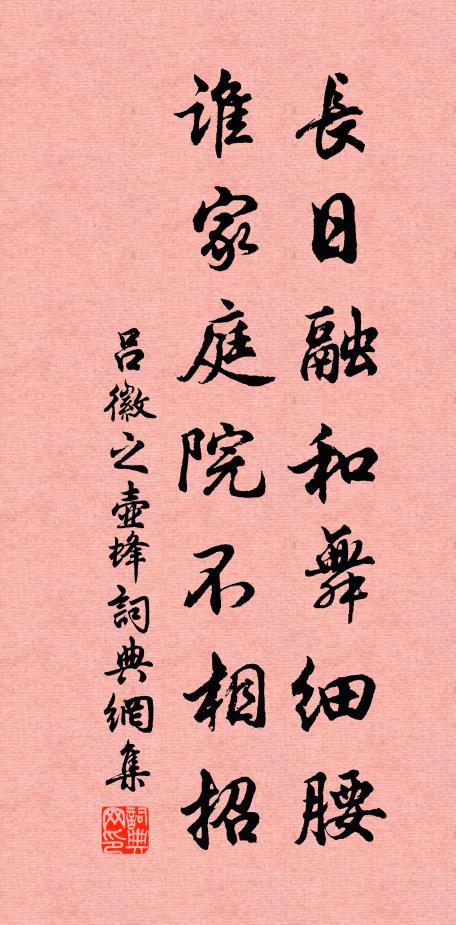 長日融和舞細腰
誰家庭院不相招
呂徽之壺蜂詞典網集
詞典网印